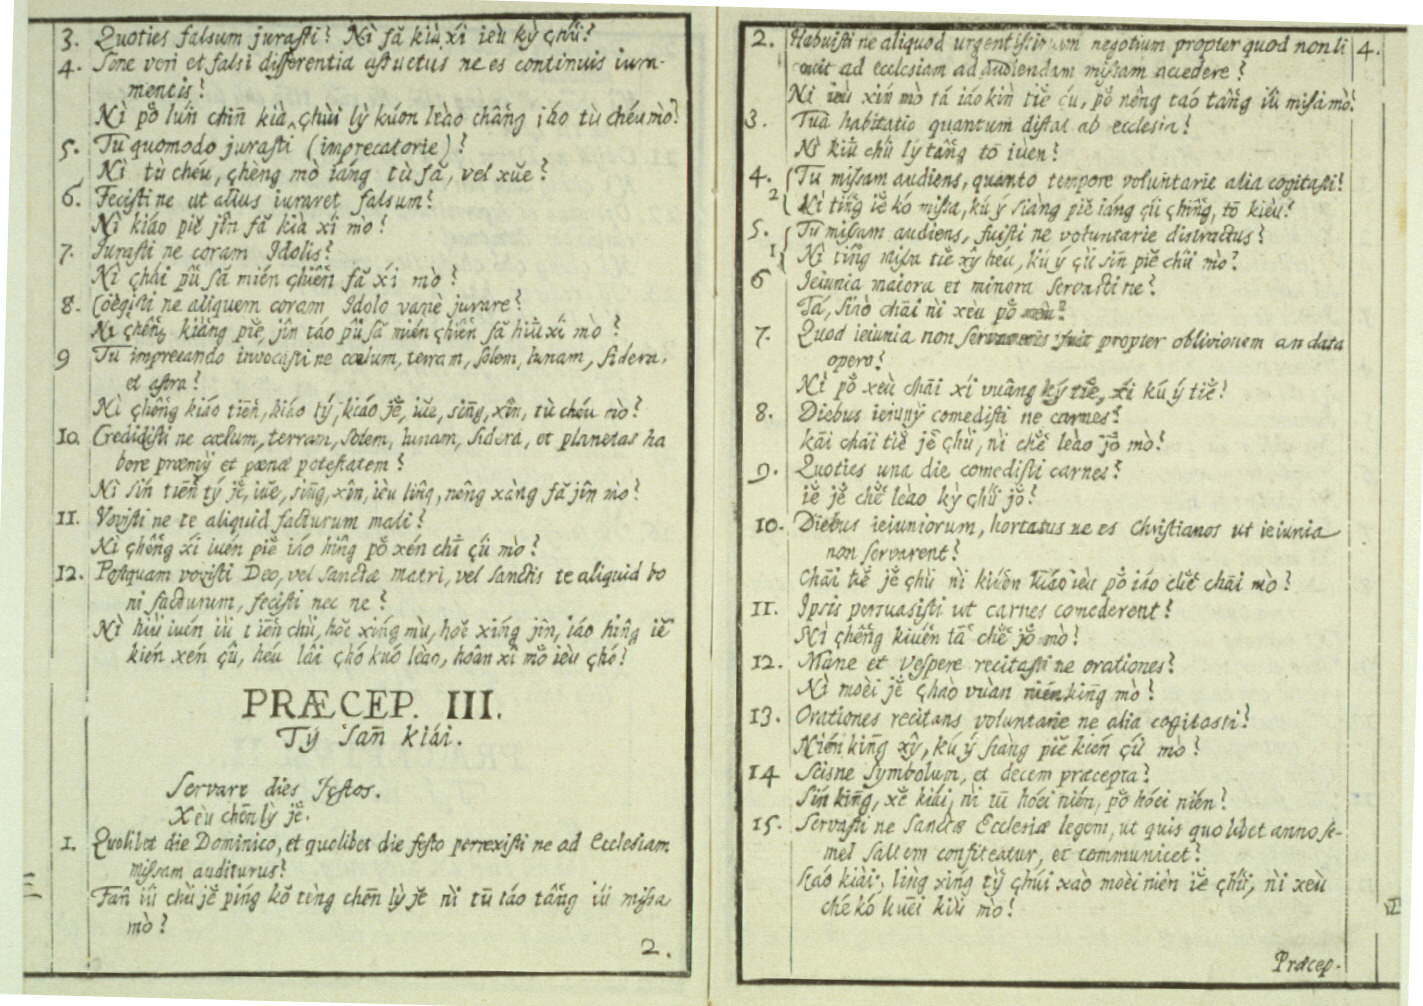 3. Quoties falsum jurasti? Nì fă kiù xí ièu kỳ çhú?
4. Sine veri et falsi differentia assuetus ne es continuis iura-
mentis?
Nì pŏ lún chin̄ kià, çhùi lỳ kúon leào châng iáo tù chéu mò?
5. Tu quomodo jurasti (imprecatorie)?
Nì tù chéu, çhèng mò iáng tù fă, vel xŭe?
6. Fecisti ne ut alius iuraret falsum?
Nì kiáo piĕ jîn fă kià xí mò?
7. Iurasti ne coram Idolis?
Nì çhái pû să mién çhiên fă xí mò?
8. Coëgisti ne aliquem coram Idolo vanè jurare?
Nì kiàng piĕ jîn táo pû să mién çhiên fă hiū xí mò?
9 Tu imprecando invocasti ne cœlum, terram, solem, lunam, sidera,
et astra?
Nì çhêng kiáo tiēn, kiáo tý, kiáo jĕ, iŭe, sing, xîn, tù chéu mò?
10. Credidisti ne cœlum, terram, solem, lunam, sidera, et planetas ha
bere præmÿ et pœnæ potestatem?
Nì sín tiēn tý jĕ, iŭe, sing, xîn, ièu lîng, nêng xàng fă jîn mò?
11. Vovisti ne te aliquid facturum mali?
Nì çhêng xí iuén piĕ iáo hîng pŏ xén chī çú mò?
12. Postquam vovisti Deo, vel sanctæ matri, vel sanctis te aliquid bo
ni facturum, fecisti nec ne?
Nì hiù iuén iû tiēn chù, hoĕ xíng mù, hoĕ xíng jîn, iáo hîng iĕ
kién xén çú, héu lâi çhó kuó leào, hoân xí mŏ ièu çhó?
PRÆCEP. III.
Tý san̄ kiái.
Servare dies Festos.
Xèu chēn lỳ jĕ.
1. Quolibet die Dominico, et quolibet die festo perrexisti ne ad Ecclesiam
missam auditurus?
Fân iû chù jĕ píng kŏ tèng chēn lỳ jĕ nì tū táo tâng iû missa
mò?
2.
2. Habuisti ne aliquod urgentissimum negotium propter quod non li
cuit ad ecclesiam ad audiendam missam accedere?
Nì ièu xín mò tá iáo kìn tiĕ çú, pŏ nêng taó tâng iû missa mò?
3. Tua habitatio quantum distat ab ecclesia?
Nì kiū chú lý tâng tō iùen?
4. Tu missam audiens, quanto tempore voluntarie alia cogitasti?
2 Nì tíng iĕ kó missa, kú ý siàng piĕ iáng çú chîng, tō kièu?
5. Tu missam audiens, fuisti ne voluntarie distractus?
1 Nì tíng missa tiĕ xŷ héu, kú ý çù sin̄ piĕ chú mò?
6 Ieiunia maiora et minora servasti ne?
Tá, siào chāi nì xèu pŏ xèu?
7. Quod ieiunia non servaveris fuit propter oblivionem an data
opera?
Nì pŏ xèu chāi xí vuâng ký tiĕ, xí kú ý tiĕ?
8. Diebus ieiunÿ comedisti ne carnes?
kāi chāi tiĕ jĕ çhù, nì chĕ leào jŏ mò?
9. Quoties una die comedisti carnes?
iĕ jĕ chĕ leào kỳ çhú jŏ?
10. Diebus ieiuniorum, hortatus ne es Christianos ut ieiunia
non servarent?
chāi tiĕ jĕ çhù nì kiuén kiáo ièu pŏ iáo chāi mò?
11. Ipsis persuasisti ut carnes comederent?
Nì çhêng kiuén tā chĕ jŏ mò?
12. Mane et vespere recitasti ne orationes?
Nì moèi jĕ çhaò vuàn nién kin̄g mò?
13. Orationes recitans voluntarie ne alia cogitasti?
Nién kin̄g xŷ, kú ý siàng piĕ kién çú mò?
14 Scisne symbolum, et decem præcepta?
Sín kin̄g, xĕ kiái, nì tū hóei nién, pŏ hóei nién?
15. Servasti ne sanctæ Ecclesiæ legem, ut quis quolibet anno se-
mel saltem confiteatur, et communicet?
kiái, lìng xíng tỳ çhúi xào moèi nièn iĕ çhú, nì xèu
ché kó kuēi kiù mò?
Præcep-